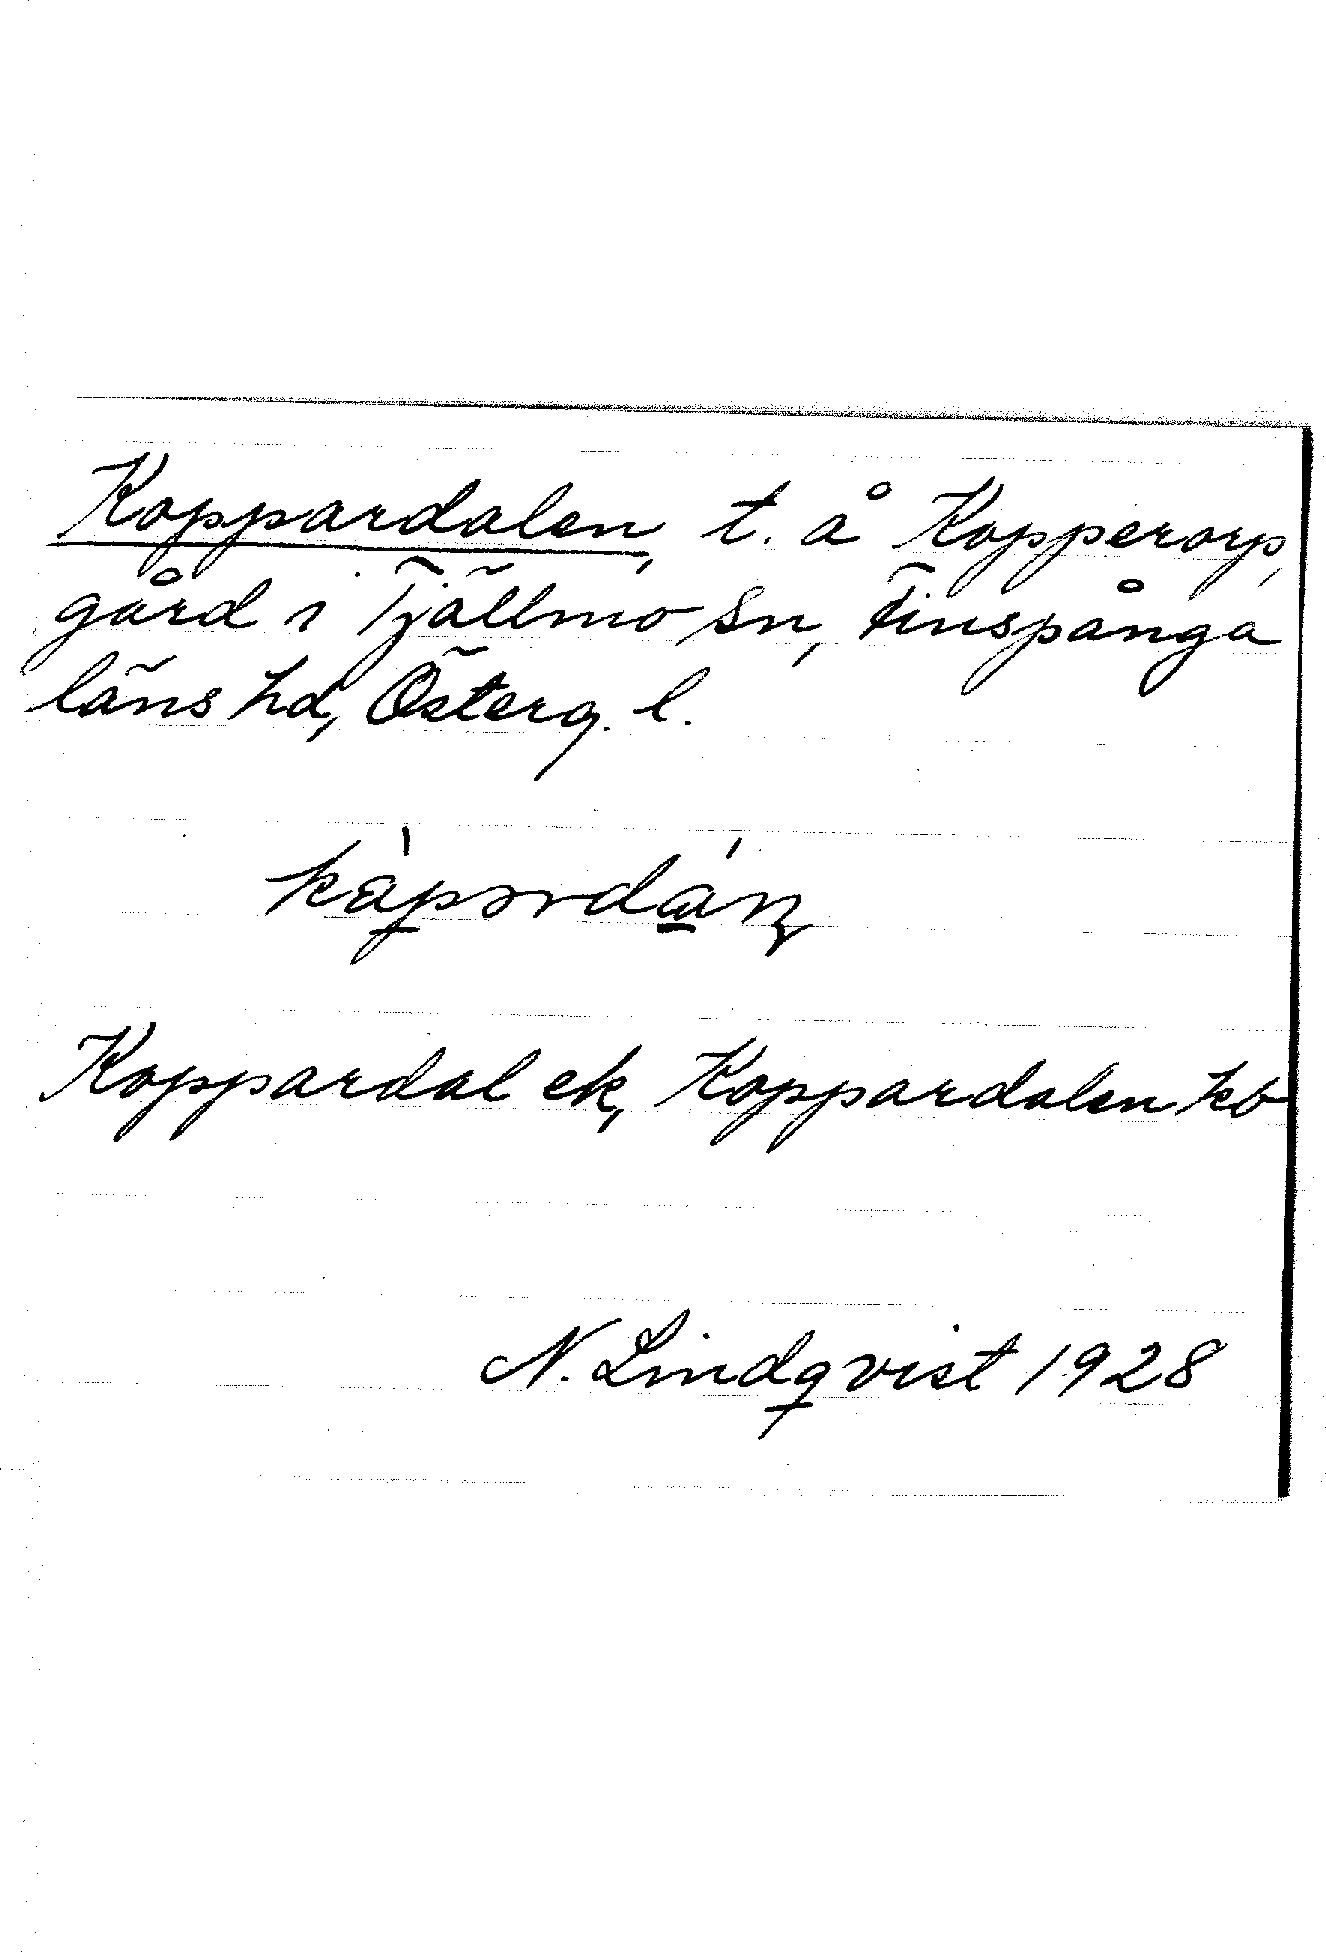 Koppardalen, t. å Kopperorp,
gård i Tjällmo sn, Finspånga
läns hd, Österg. l.
kȧpərdán
Koppardal ek, Koppardalen kb
N. Lindqvist 1928